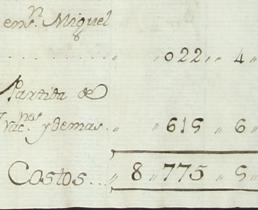 en Sn. Miguel
. . . . . . . . . . 022 ,, 4 ,,
Partida de
Vacnes y demas ,, ,, 615 ,, 6 ,,
Costos . . . ,, 8 ,, 775 ,, 5 ,,